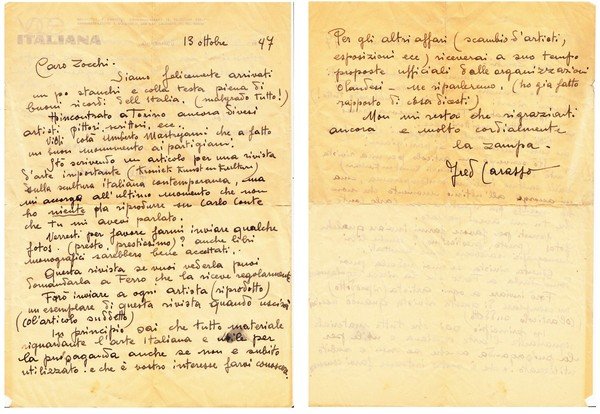 VIE
ITALIANA
13 ottobre 1947
Caro Zocchi.
Siamo felicemente arrivati
un po stanchi e colla testa piena di
buoni ricordi dell'Italia. (malgrado tutto!)
Rincontrato a Torino ancora diversi
artisti pittori, scrittori, ecc.
Visto colà Umberto Mastroianni che a fatto
un buon monumento ai partigiani.
Sto scrivendo un articolo per una rivista
d'arte importante (Kroniek Kunst en Kultur)
sulla scultura italiana contemporanea, ma
mi accorgo all'ultimo momento che non
ho niente da riprodurre su Carlo Conte
che tu mi avevi parlato.
Vorresti per favore farmi inviare qualche
fotos. (presto, prestissimo) ? anche libri
monografici sarebbero bene accettati.
Questa rivista se vuoi vederla puoi
domandarla a Ferro che la riceve regolarmente
Farò inviare a ogni artista (riprodotto)
un esemplare di questa rivista quando uscirà
(coll'articolo suddetto)
In principio sai che tutto materiale
riguardante l'arte Italiana e utile per
la propaganda anche se non e subito
utilizzato. e che è vostro interesse farci conoscere.
Per gli altri affari (scambio d'artisti,
esposizioni ecc) riceverai a suo tempo
proposte ufficiali dalle organizzazioni
Olandesi — ne riparleremo. (ho già fatto
rapporto di cosa desti)
Non mi resta che ringraziarti
ancora e molto cordialmente
la zampa.
Fred Carasso